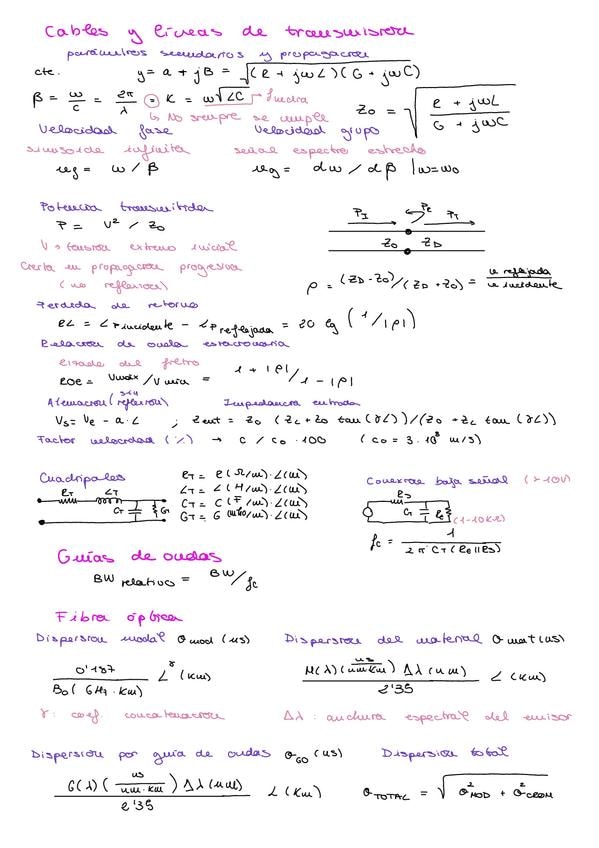 Cables y líneas de transmisión
parámetros secundarios y propagación
cte. γ = α + jβ = √(R + jωL)(G + jωC)
β = ω/c = 2π/λ = K = ω√LC → Lineal
↳ No siempre se cumple
Z₀ = √(R + jωL / G + jωC)
Velocidad fase Velocidad grupo
sinusoide infinita señal espectro estrecho
ug = ω / β ug = dω / dβ | ω=ω₀
Potencia transmitida
P = V² / Z₀
V → tensión extremo inicial
Cierta en propagación progresiva
(no reflexión)
PI PR PT
Z₀ ZD
ρ = (ZD - Z₀)/(ZD + Z₀) = u reflejada / u incidente
Pérdida de retorno
RL = LP incidente - LP reflejada = 20 lg (1/|ρ|)
Relación de onda estacionaria
ROE = Vmáx/Vmin = 1 + |ρ| / 1 - |ρ|
Atenuación (sin reflexión) Impedancia entrada
Vs = Ve - a·L ; Zent = Z₀ (ZL + Z₀ tan (γL))/(Z₀ + ZL tan (γL))
Factor velocidad (%) → c / c₀ · 100 (c₀ = 3·10⁸ m/s)
Cuadripolos
RT LT CT GT
RT = R (Ω/m)·L(m)
LT = L (H/m)·L(m)
CT = C (F/m)·L(m)
GT = G (mho/m)·L(m)
Conexión baja señal (>10V)
Rs CT Re (1-10KΩ)
fc = 1 / 2π CT (Re||Rs)
Guías de ondas
BW relativo = BW/fc
Fibra óptica
Dispersión modal σmod (ns) Dispersión del material σmat (ns)
0'187 / B₀ (GHz·Km) L^γ (Km)
M(λ) (ns/nm·Km) Δλ (nm) / 2'35 L (Km)
γ: coef. concatenación Δλ: anchura espectral del emisor
Dispersión por guía de ondas σGO (ns) Dispersión total
G(λ) (ns/nm·Km) Δλ (nm) / 2'35 L (Km)
σTOTAL = √σ²MOD + σ²CROM